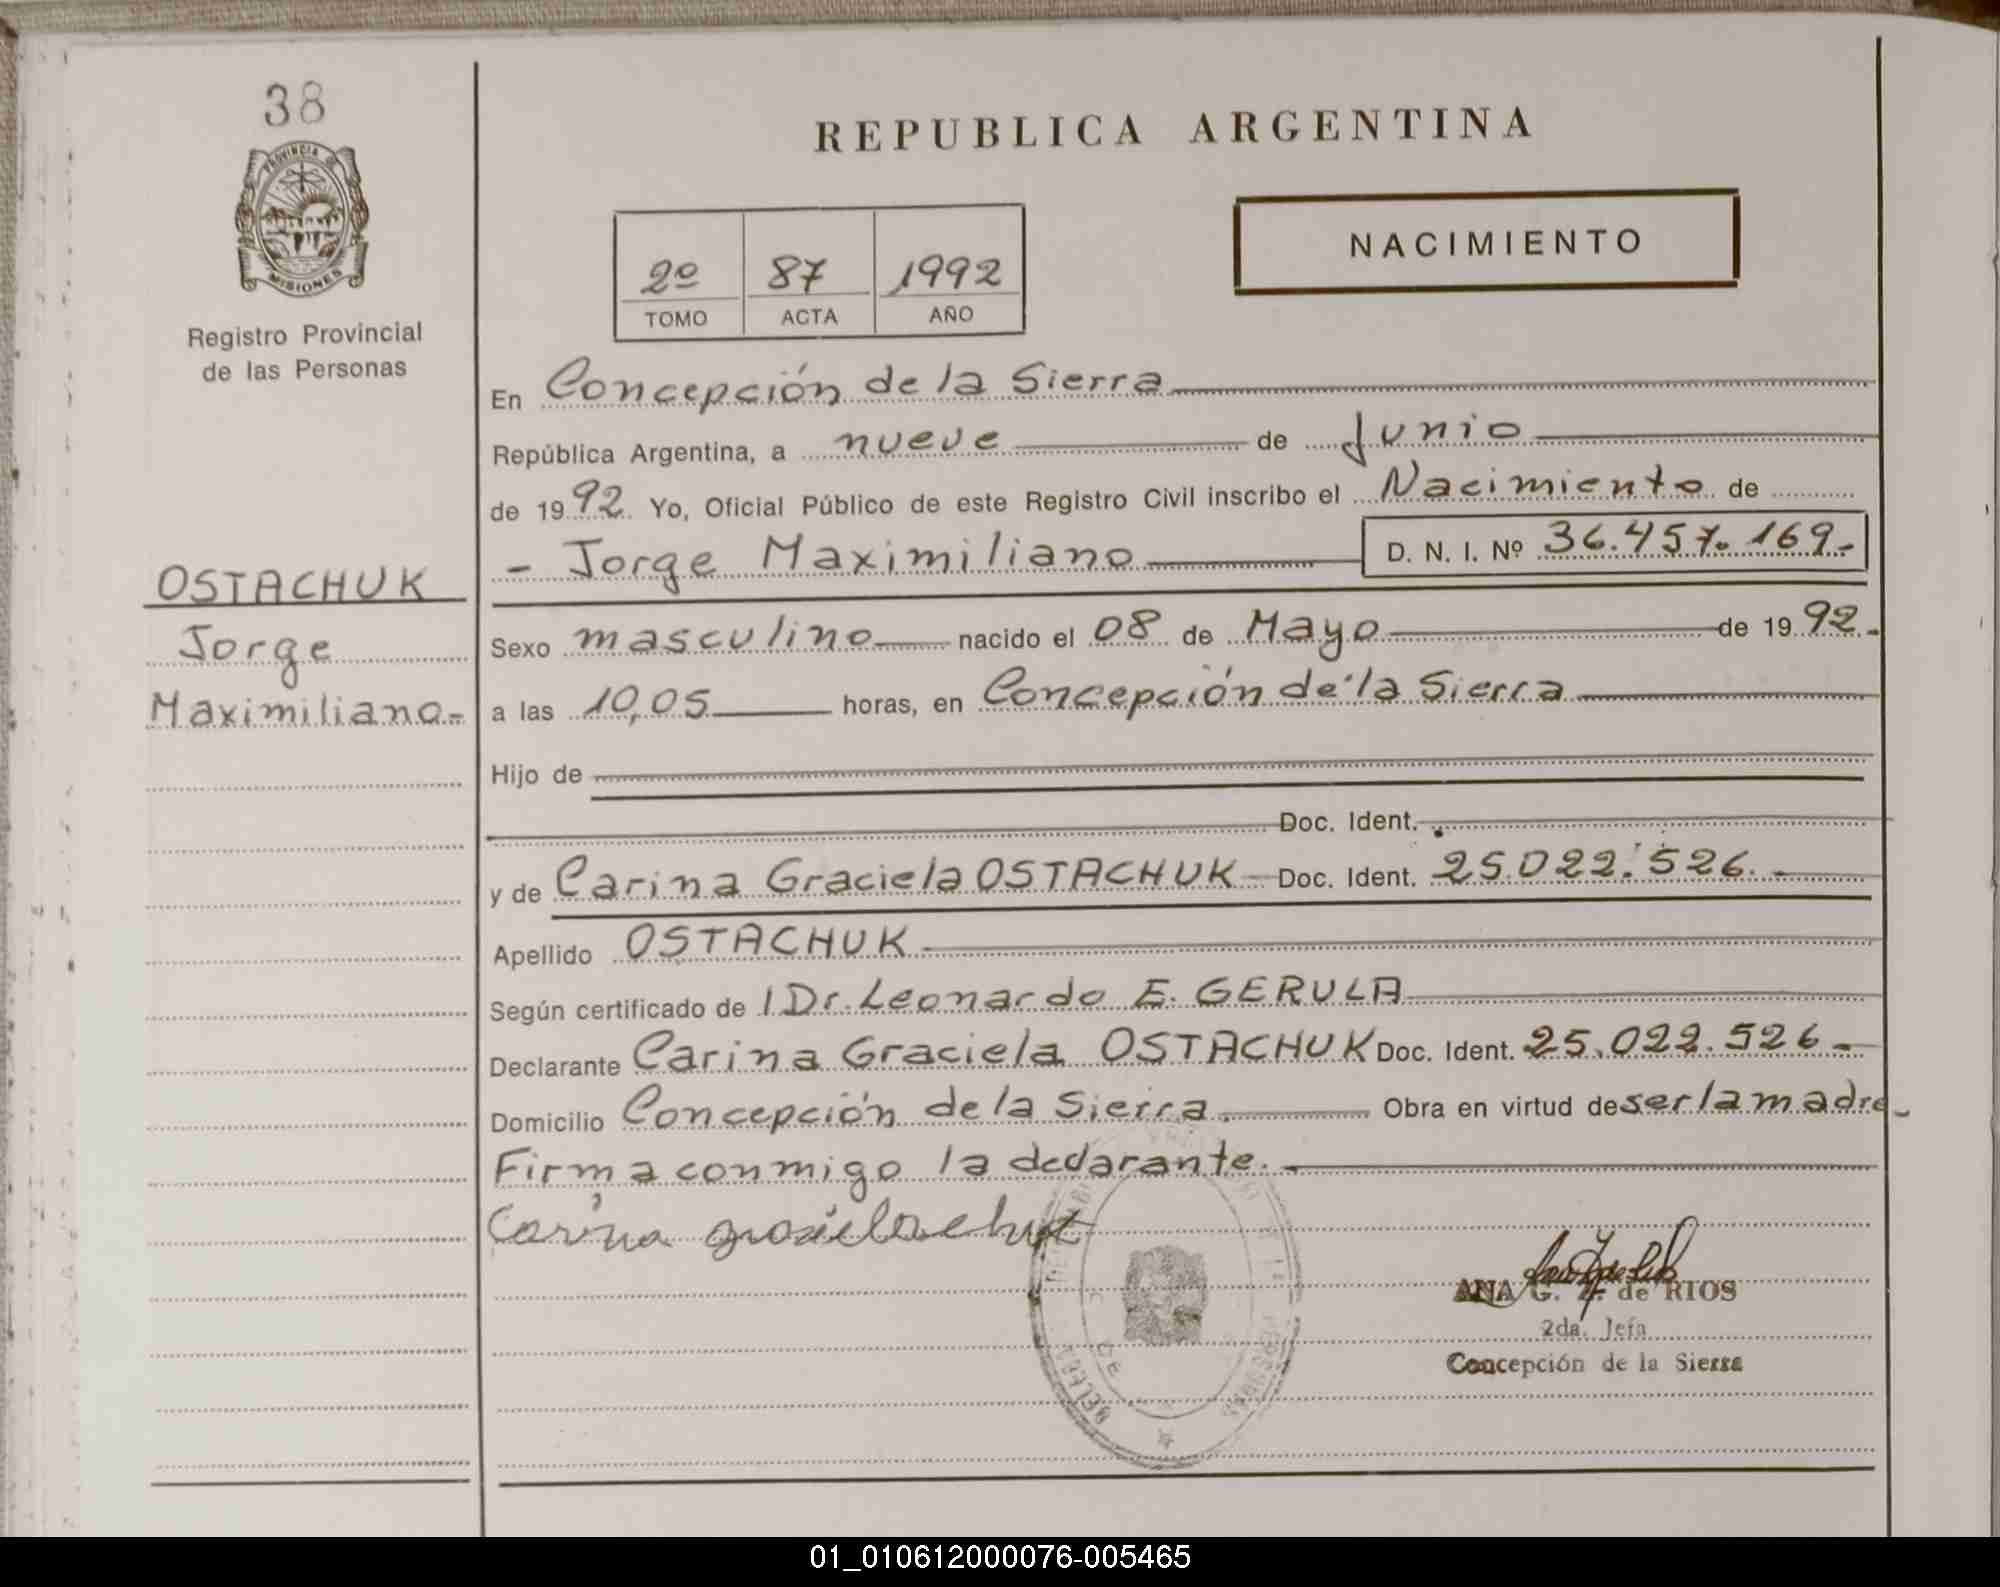 38
PROVINCIA DE
MISIONES
Registro Provincial
de las Personas
OSTACHUK
Jorge
Maximiliano.-
REPUBLICA ARGENTINA
2º 87 1992
TOMO ACTA AÑO
NACIMIENTO
En Concepción de la Sierra
República Argentina, a nueve de Junio
de 1992. Yo, Oficial Público de este Registro Civil inscribo el Nacimiento de
- Jorge Maximiliano D. N. I. Nº 36.457.169.-
Sexo masculino nacido el 08 de Mayo de 1992.-
a las 10,05 horas, en Concepción de la Sierra
Hijo de
Doc. Ident.
y de Carina Graciela OSTACHUK Doc. Ident. 25.022.526.-
Apellido OSTACHUK
Según certificado de l Dr. Leonardo E. GERULA
Declarante Carina Graciela OSTACHUK Doc. Ident. 25.022.526-
Domicilio Concepción de la Sierra. Obra en virtud de ser la madre.
Firma conmigo la declarante.-
Carina
ANA G. Z. de RIOS
2da. Jefa
Concepción de la Sierra
01_010612000076-005465